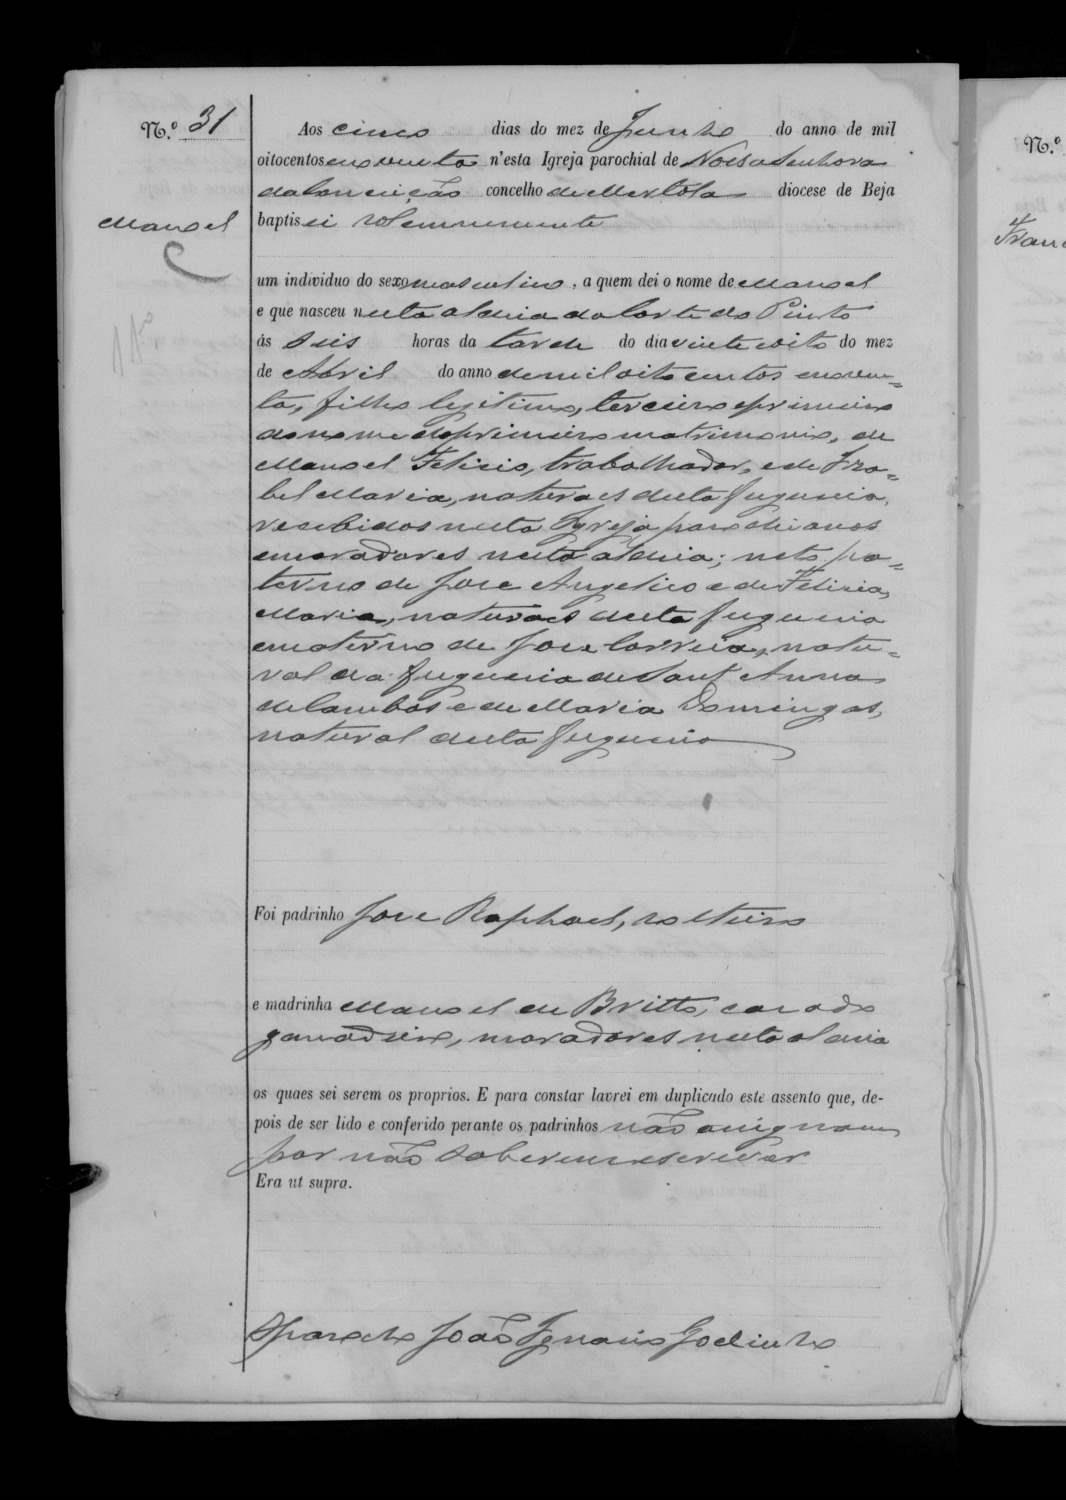 N.º 31
Aos cinco dias do mez de Junho do anno de mil
oitocentos enoventa n'esta Igreja parochial de Nossa Senhora
da Conceição concelho de Mertola diocese de Beja
Manoel
baptisei solemnemente
um individuo do sexo masculino, a quem dei o nome de Manoel
e que nasceu nesta aldeia da Corte do Pinto
ás seis horas da tarde do dia vinte e oito do mez
de Abril do anno de mil oito centos enoven=
ta, filho legitimo, terceiro e primeiro
do nome do primeiro matrimonio, de
Manoel Felicio, trabalhador, e de Iza=
bel Maria, naturaes desta freguesia,
recebidos nesta Igreja, parochianos
e moradores nesta aldeia; neto pa=
terno de Jose Angelico e de Felicia
Maria, naturaes desta freguesia
e materno de Jose Correia, natu=
ral da freguesia de Sant Anna
de Cambas e de Maria Domingas,
natural desta freguesia
Foi padrinho Jose Raphael, solteiro
e madrinha Manoel de Britto, casado
ganadeiro, moradores nesta aldeia
os quaes sei serem os proprios. E para constar lavrei em duplicado este assento que, de-
pois de ser lido e conferido perante os padrinhos não assignam
por não saberem escrever
Era ut supra.
O Parocho João Ignacio Godinho
N.º
Fran